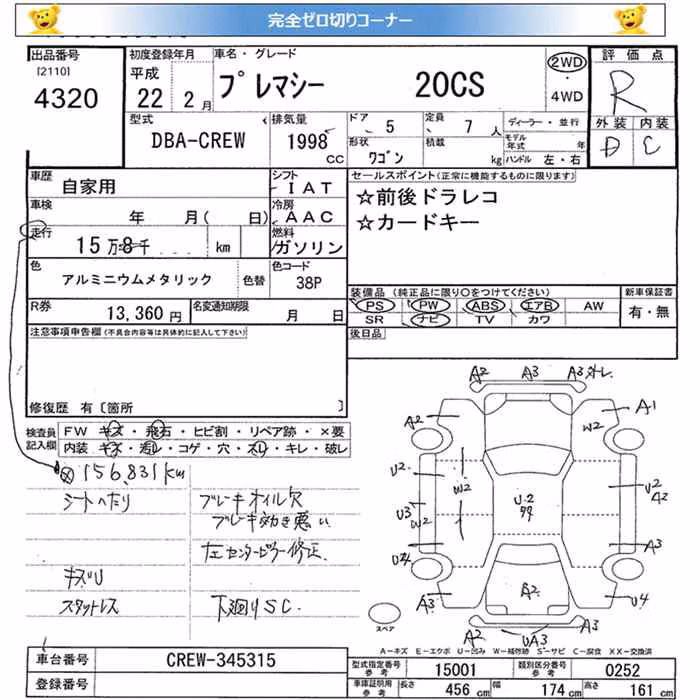 完全ゼロ切りコーナー
出品番号
[2110]
4320
初度登録年月
平成
22年 2月
車名・グレード
プレマシー 20CS
2WD
4WD
評価点
R
外装 内装
D C
型式
DBA-CREW
排気量
1998
CC
ドア
5
定員
7人
形状
ワゴン
積載
kg
ディーラー・並行
モデル年式 年
ハンドル 左・右
車歴
自家用
シフト
IAT
車検
年 月( 日)
冷房
AAC
走行
15万8千 km
燃料
ガソリン
色
アルミニウムメタリック
色替
色コード
38P
R券
13,360円
名変通知期限
月 日
セールスポイント(正常に機能するものに限ります)
☆前後ドラレコ
☆カードキー
装備品 (純正品に限り○をつけてください)
PS PW ABS エアB AW
SR ナビ TV カワ
新車保証書
有・無
後日品
注意事項申告欄(不具合内容等は具体的に記入して下さい)
修復歴 有〔箇所 〕
検査員記入欄
FW キズ・飛石・ヒビ割・リペア跡・×要
内装・キズ・汚レ・コゲ・穴・スレ・キレ・破レ
156,831km
シートへたり
ブレーキオイル欠
ブレーキ効き悪い
左センターピラー修正
キズU
スタットレス
下廻りSC.
A2 A3 A3外レ
A2 A1
W2
U2 W2 U2
A2
U.2
U3
W2
U4 A3
A3 A2 U4
A2 UA3
スペア
A-キズ E-エクボ U-凹み W-補修跡 S-サビ C-腐食 XX-交換済
車台番号
CREW-345315
登録番号
型式指定番号
参考
15001
類別区分番号
参考
0252
車庫証明用
参考
長さ 456cm 幅 174cm 高さ 161cm